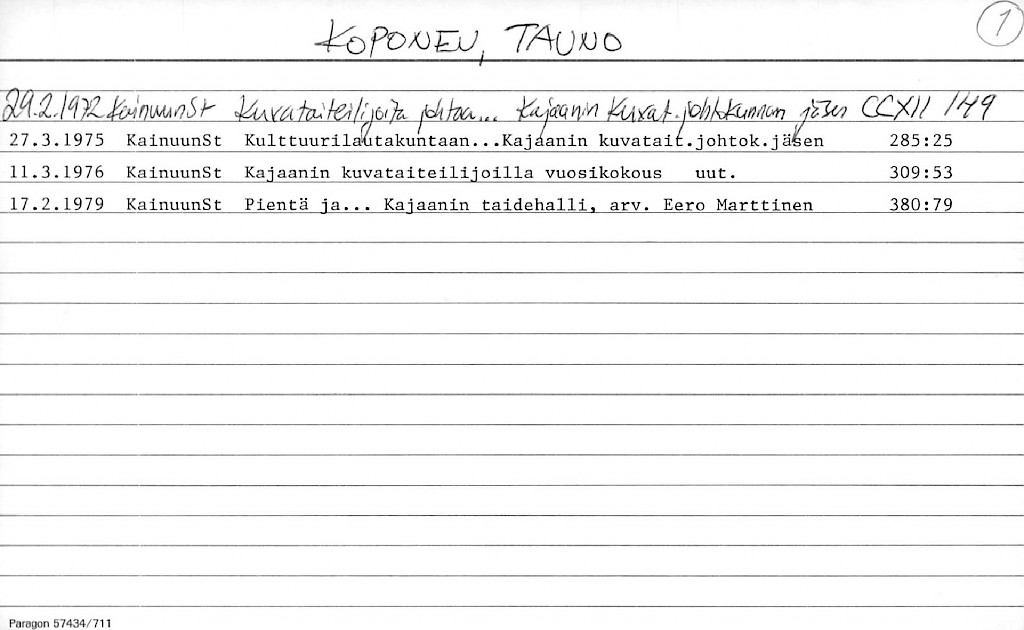 KOPONEN, TAUNO
1
29.2.1972 KainuunSt Kuvataiteilijoita johtaa... Kajaanin Kuvat.johtokunnan jäsen CCXII 149
27.3.1975 KainuunSt Kulttuurilautakuntaan...Kajaanin kuvatait.johtok.jäsen 285:25
11.3.1976 KainuunSt Kajaanin kuvataiteilijoilla vuosikokous uut. 309:53
17.2.1979 KainuunSt Pientä ja... Kajaanin taidehalli, arv. Eero Marttinen 380:79
Paragon 57434/711